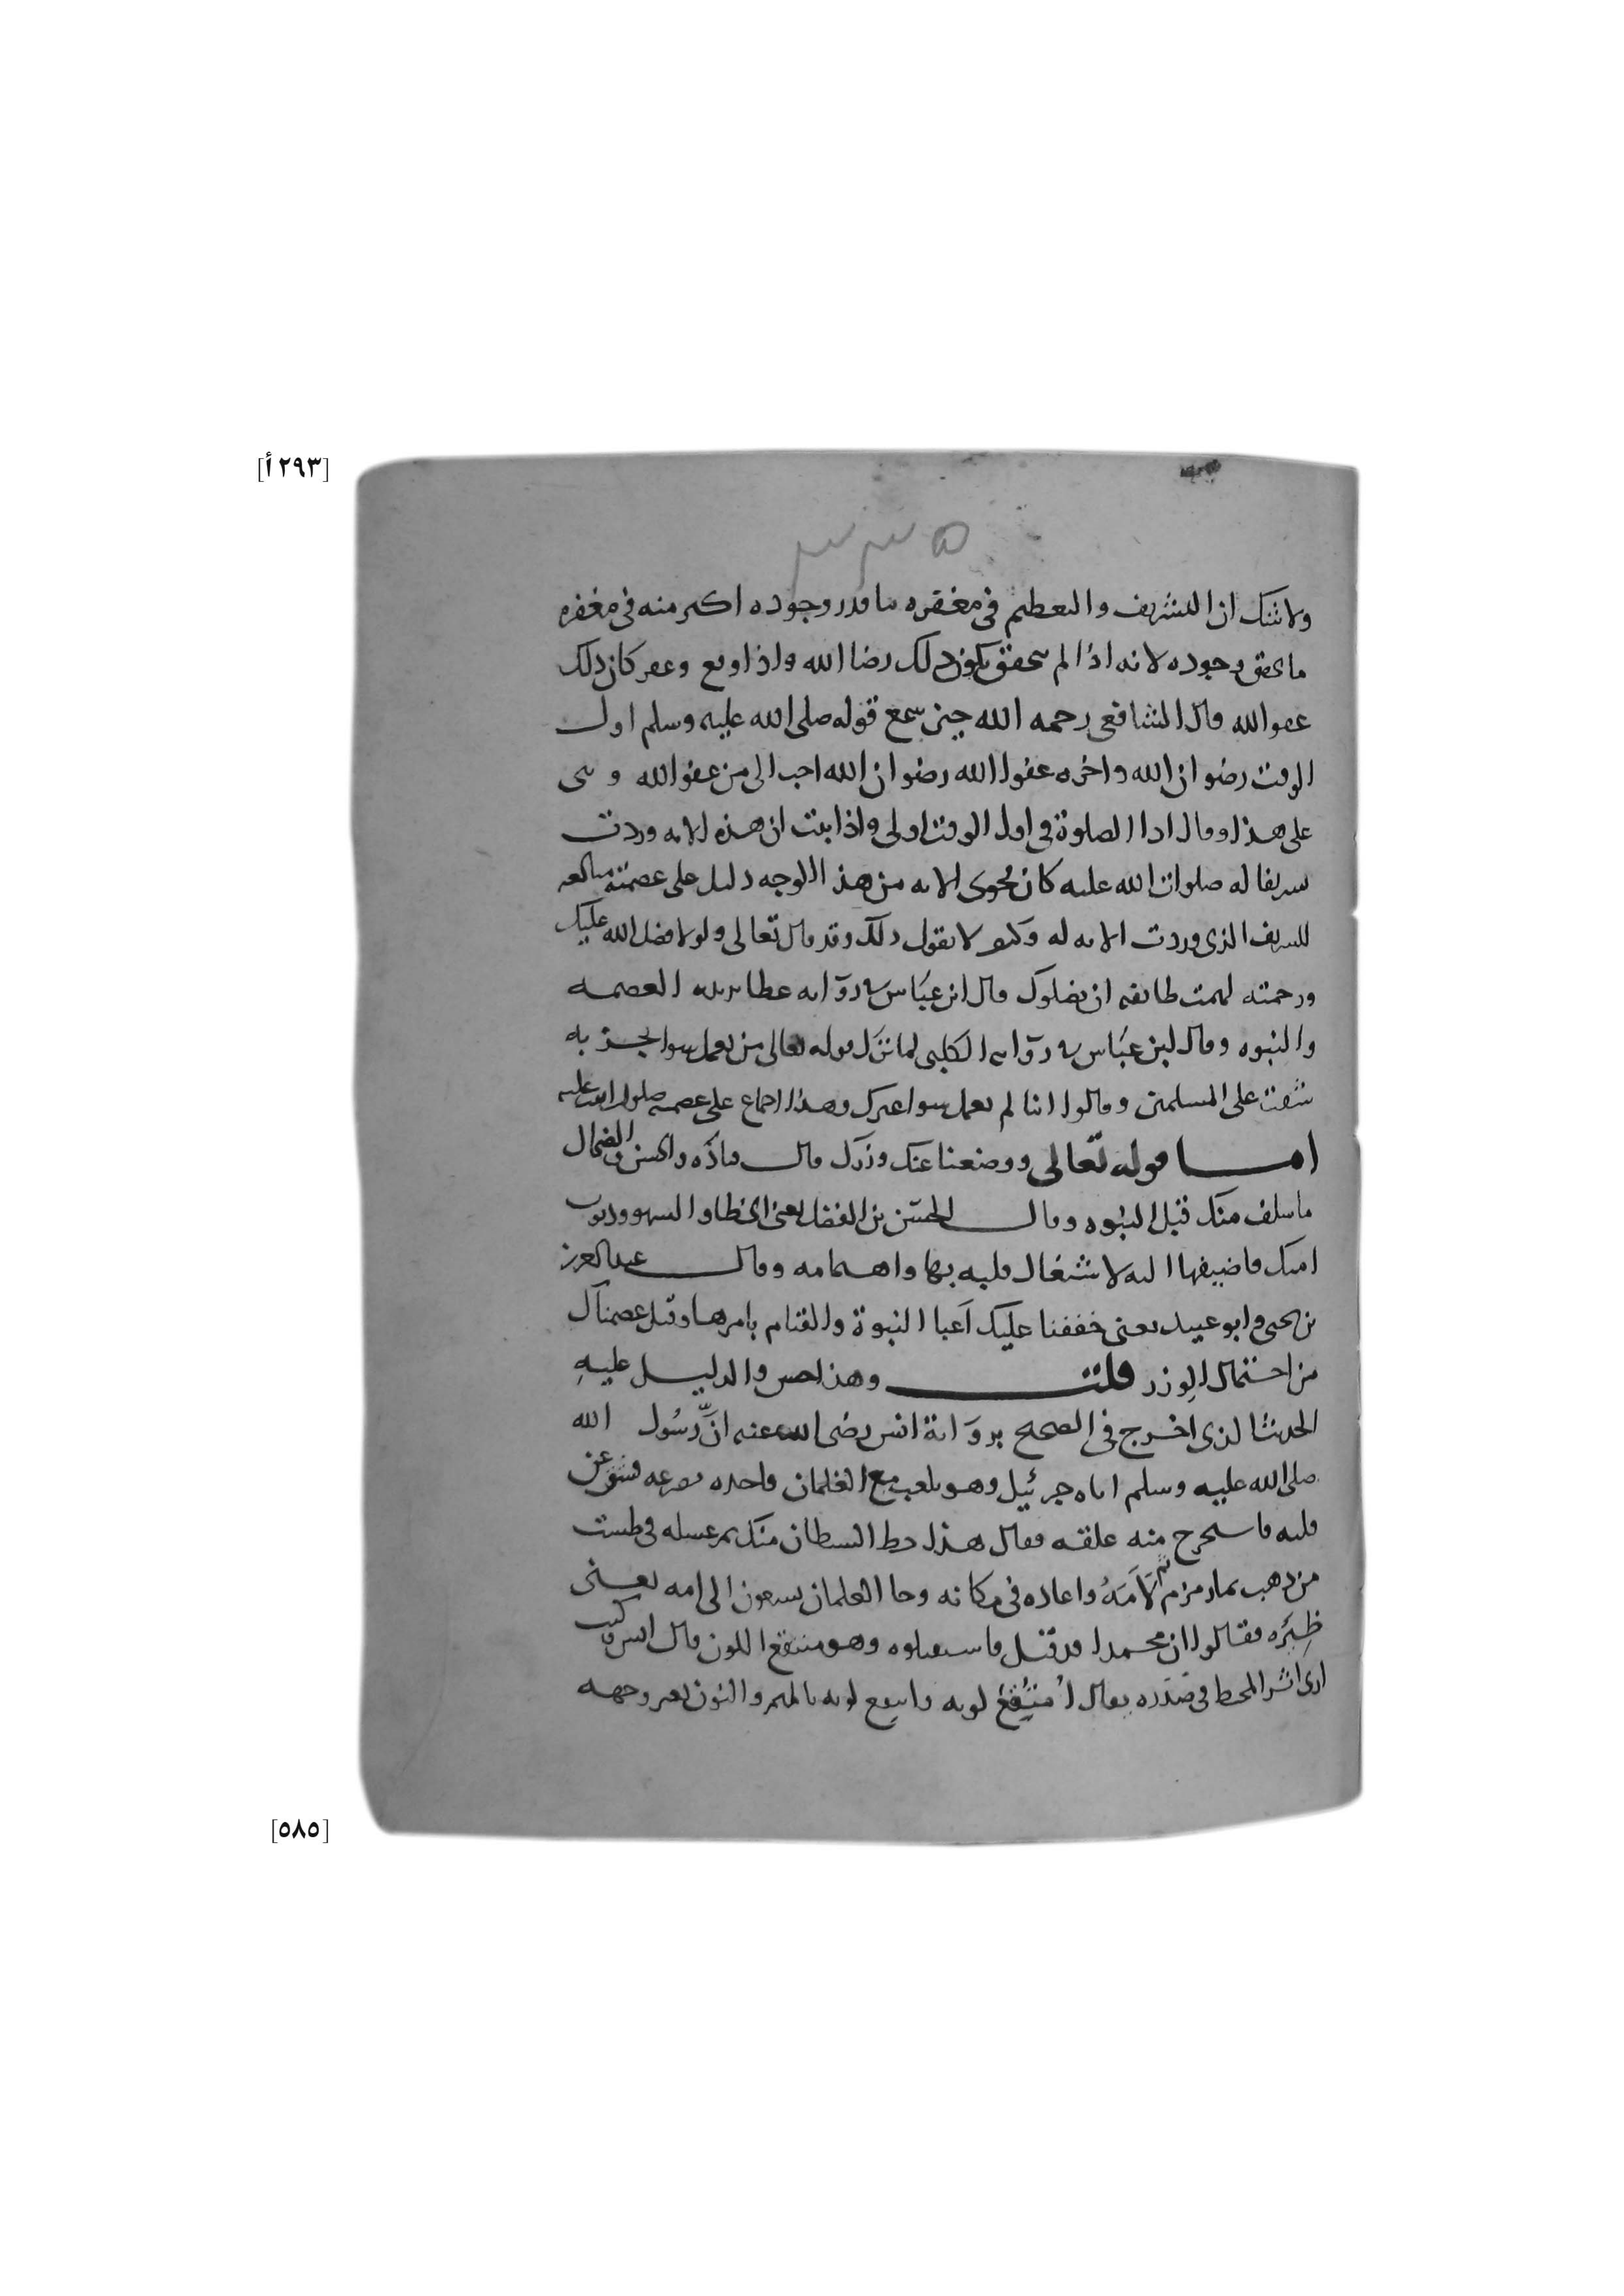 [٢٩٣أ]
٣٣٥
ولا شك ان التشريف والتعظيم في مغفرة ما قدر وجوده اكثر منه في مغفرة
ما تحقق وجوده لانه اذا لم يتحقق يكون ذلك رضا الله واذا وقع وغفر كان ذلك
عفو الله قال الشافعي رحمه الله حين سمع قوله صلى الله عليه وسلم اول
الوقت رضوان الله واخره عفو الله رضوان الله احب الي من عفو الله وبنى
على هذا وقال اداء الصلوة في اول الوقت اولى واذا ثبت ان هذه الاية وردت
تشريفا له صلوات الله عليه كان فحوى الاية من هذا الوجه دليل على عصمته مبالغة
للتشريف الذي وردت الاية له وكيف لا يقول ذلك وقد قال تعالى ولولا فضل الله عليك
ورحمته لهمت طايفة ان يضلوك قال ابن عباس في رواية عطا يريد العصمة
والنبوة وقال ابن عباس في رواية الكلبي لما نزل قوله تعالى من يعمل سوا يجز به
شقت على المسلمين وقالوا اينا لم يعمل سوا غيرك وهذا اجماع على عصمته صلوات الله عليه
اما قوله تعالى ووضعنا عنك وزرك قال قتاذه والحسن والضحاك
ما سلف منك قبل النبوة وقال الحسن بن الفضل يعني الخطا والسهو وذنوب
امتك فاضيفها اليه لاشتغال قلبه بها واهتمامه وقال عبد العزيز
بن يحيى وابو عبيد يعني خففنا عليك اعبا النبوة والقيام بامرها وقيل عصمناك
من احتمال الوزر قلت وهذا احسن والدليل عليه
الحديث الذي اخرج في الصحيح برواية انس رضى الله عنه ان رسول الله
صلى الله عليه وسلم اتاه جبرئيل وهو يلعب مع الغلمان فاخذه فصرعه فشق عن
قلبه فاستخرج منه علقة فقال هذا حظ الشيطان منك ثم غسله في طست
من ذهب بماء زمزم ثم لأمه واعاده في مكانه وجا الغلمان يسعون الى امه يعني
ظئره فقالوا ان محمدا قد قتل فاستقبلوه وهو منتقع اللون قال انس وكنت
ارى اثر المخيط في صدره يقال امتقع لونه وانتقع لونه بالميم والنون تغير وجهه
[٥٨٥]